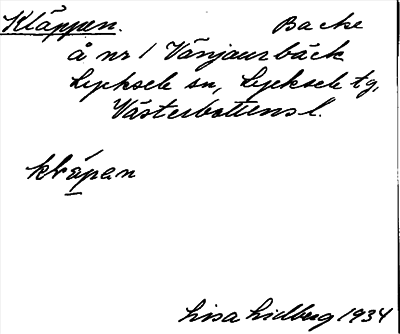 Kläppen. Backe
å nr 1 Vänjaurbäck
Lycksele sn, Lycksele tg,
Västerbottens l.
klǽpen
Lisa Lidberg 1934